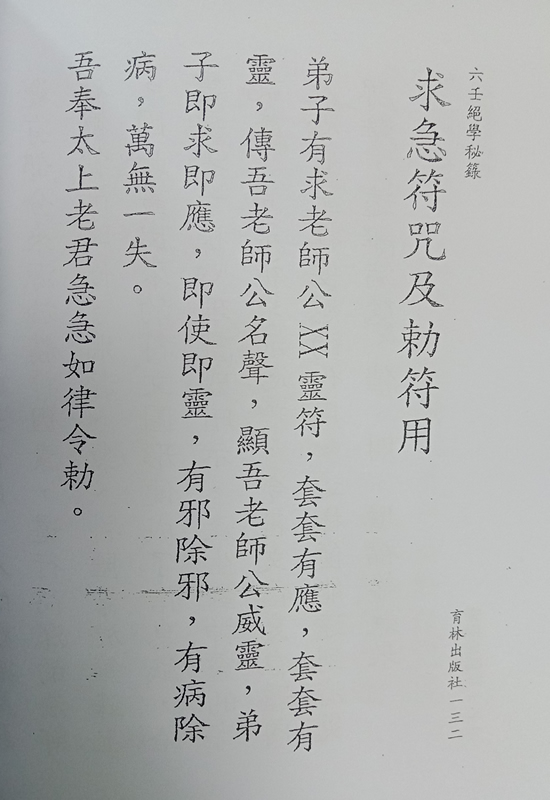 六壬絕學秘籙
育林出版社 一三二
求急符咒及勅符用
弟子有求老師公XX靈符，套套有應，套套有
靈，傳吾老師公名聲，顯吾老師公威靈，弟
子即求即應，即使即靈，有邪除邪，有病除
病，萬無一失。
吾奉太上老君急急如律令勅。